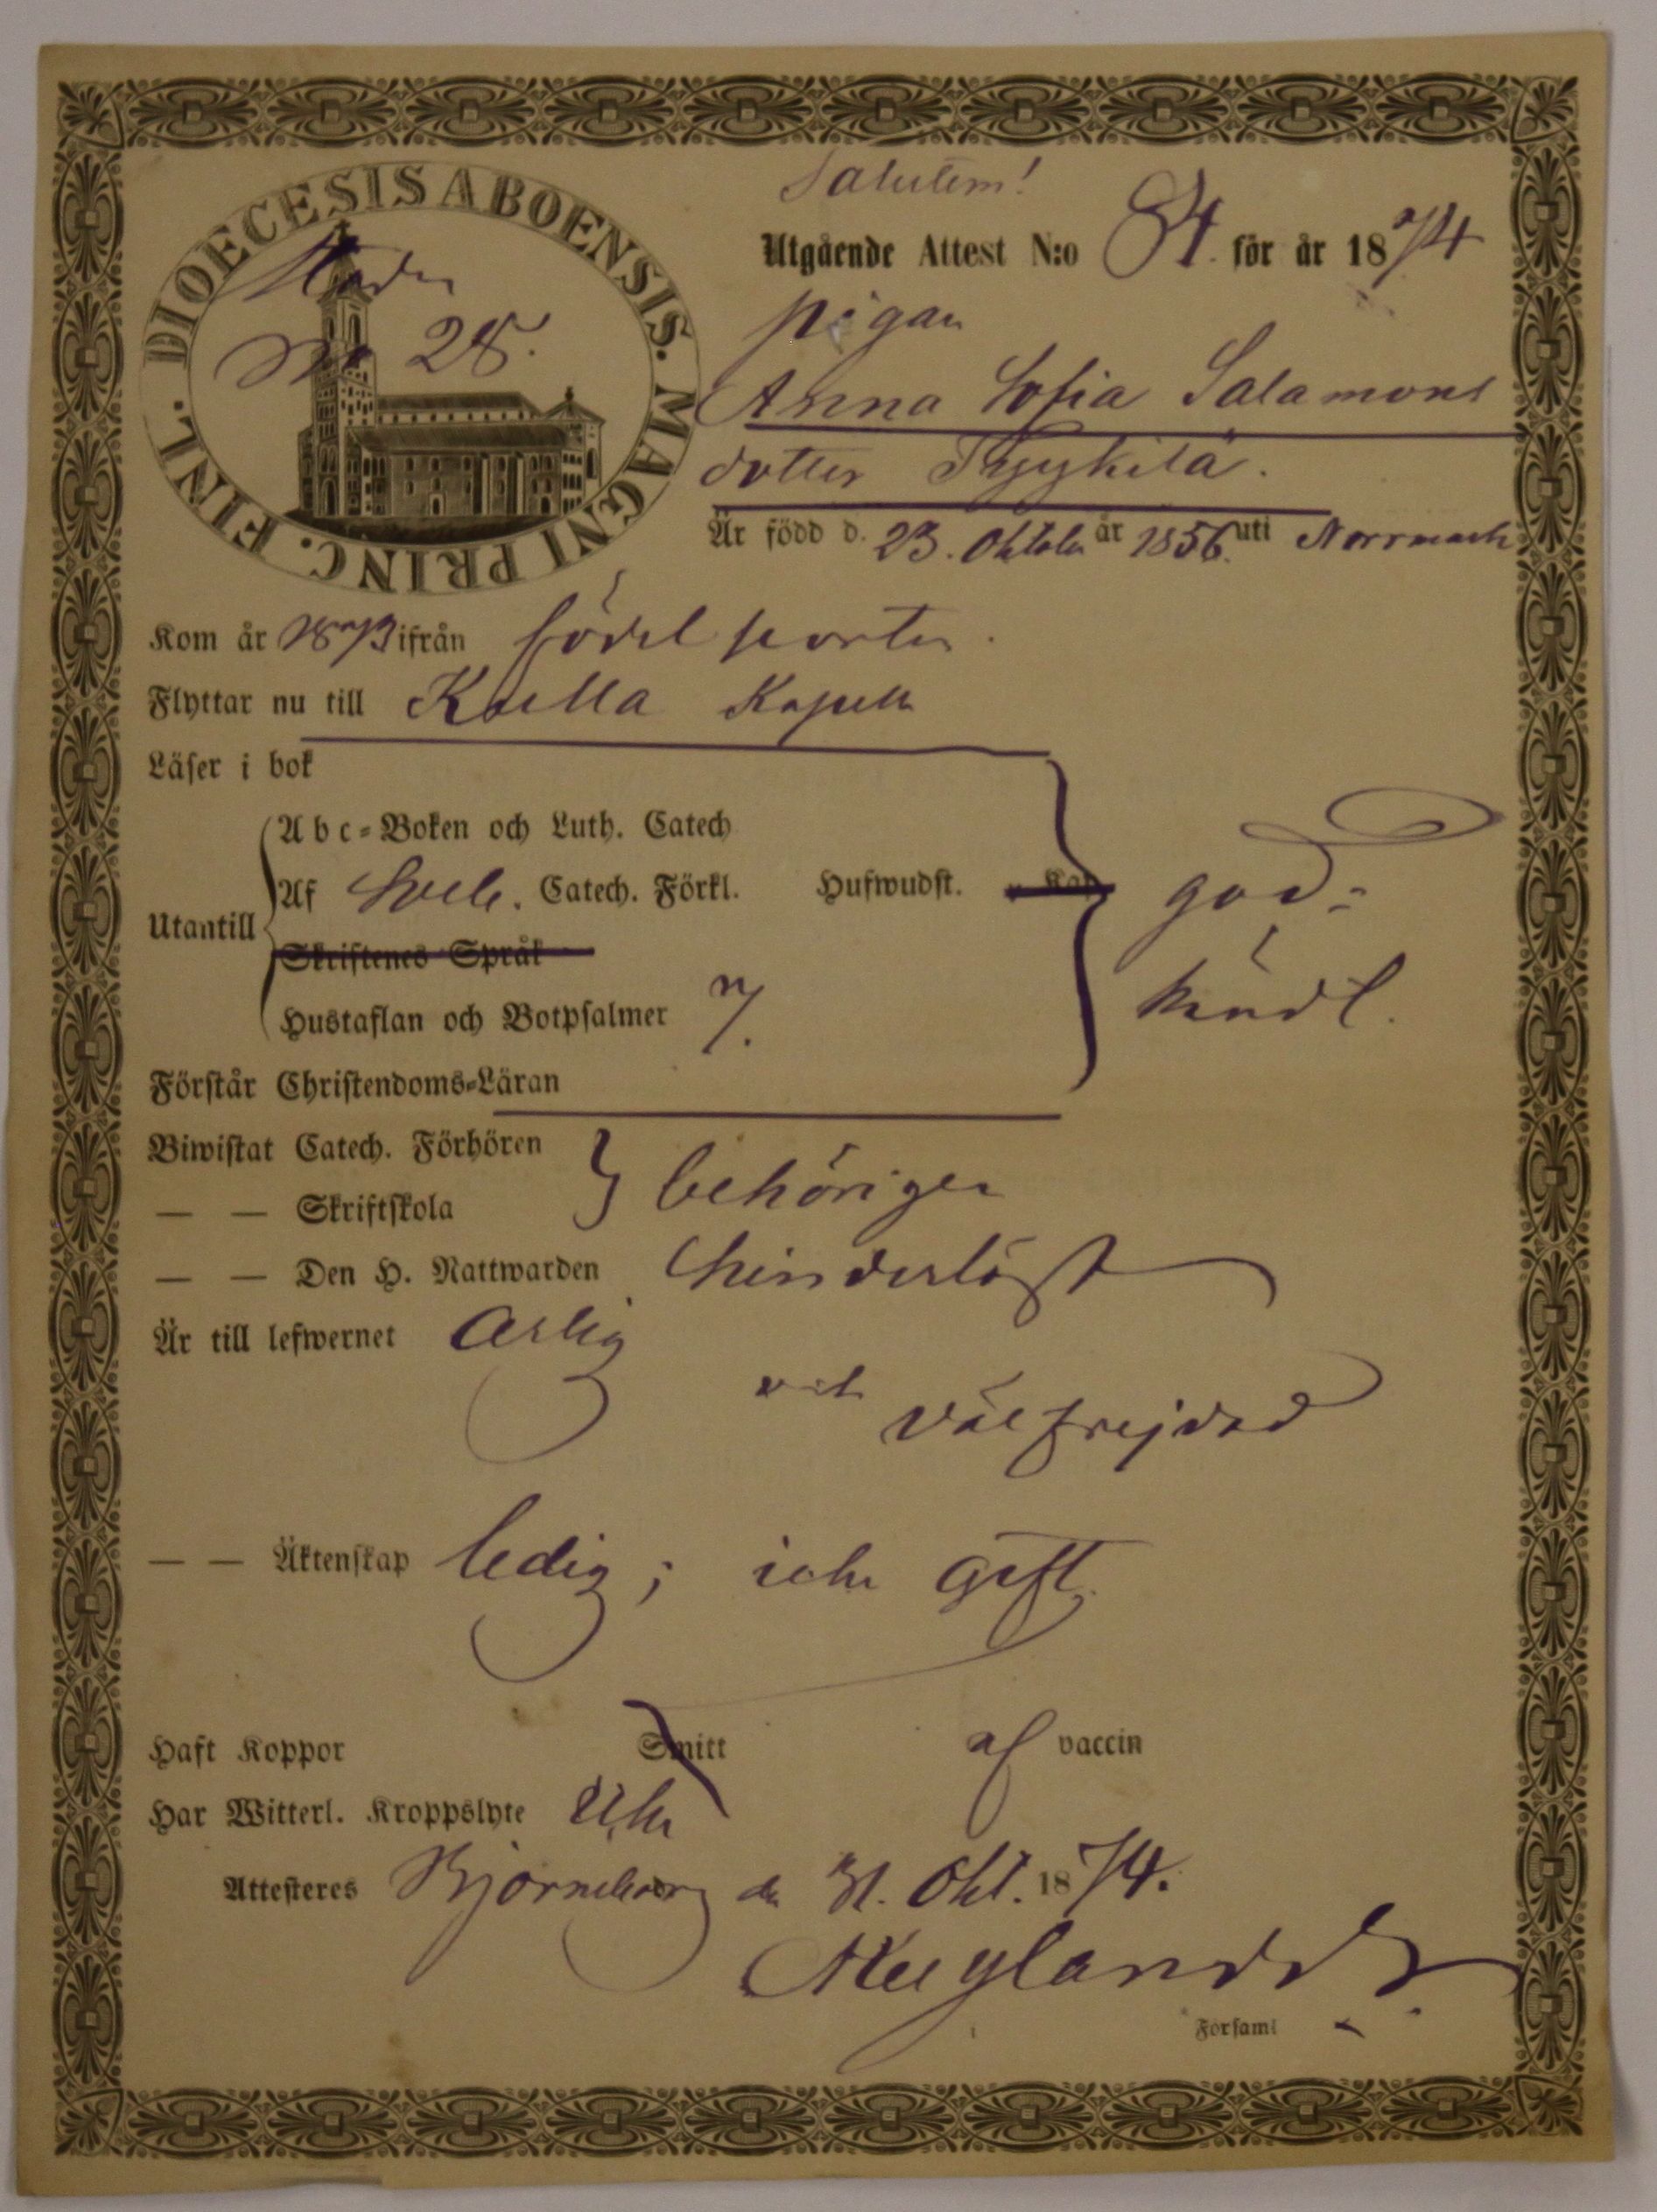 DIOECESIS ABOENSIS. MAGNI PRINC. FINL.
No 28.
Salutem!
Utgående Attest N:o 84. för år 1874
pigan
Anna Sofia Salamons
dotter
Är född d. 23. Oktober år 1856 uti Norrmark
Kom år 1873 ifrån födelseorten.
Flyttar nu till Kulla Kapell
Läser i bok
Abc-Boken och Luth. Catech
Af Sveb. Catech. Förkl. Hufwudst. Kap
Utantill
Skriftenes Språk
Hustaflan och Botpsalmer 7.
god-
känd t.
Förstår Christendoms-Läran
Biwistat Catech. Förhören behörigen
— — Skriftskola
— — Den H. Nattwarden hinderlöst
Är till lefwernet ärlig
och välfrejdad
— — Äktenskap ledig; icke gift.
Haft Koppor Smitt af vaccin
Har Witterl. Kroppslyte
Attesteres Björneborg den 31. Okt. 1874.
Församl